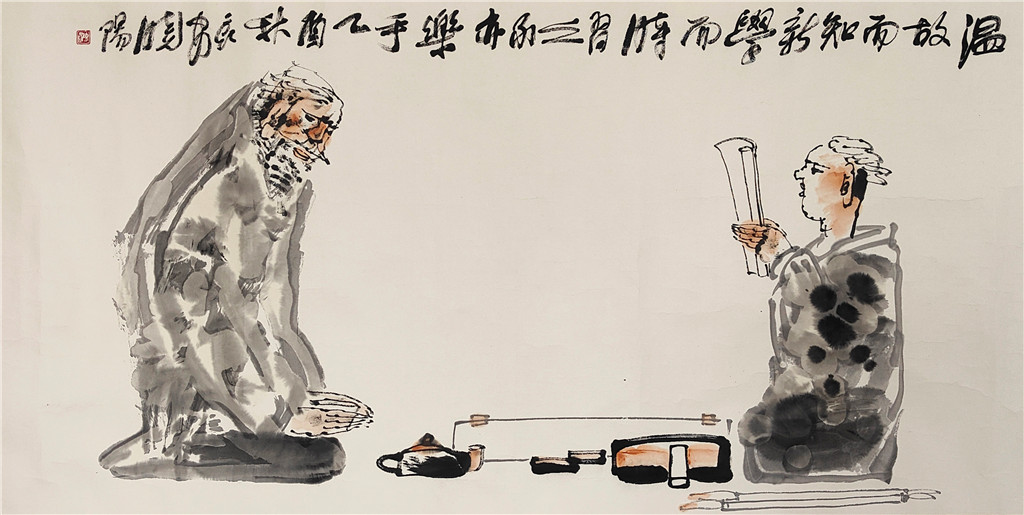 温故而知新學而時習之不亦樂乎乙酉秋長安曉陽